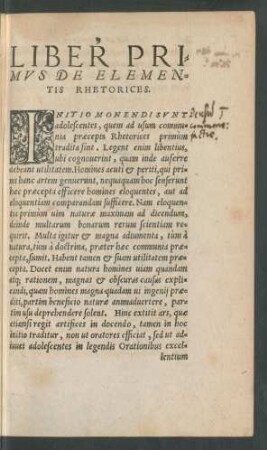 LIBER PRI-
MVS DE ELEMEN-
TIS RHETORICES.
INITIO MONENDI SVNT
adolescentes, quem ad usum commu-
nia præcepta Rhetorices primùm
tradita sint. Legent enim libentius,
ubi cognouerint, quam inde auferre
debeant utilitatem. Homines acuti & periti, qui pri-
mi hanc artem genuerunt, nequaquam hoc senserunt
hæc præcepta efficere homines eloquentes, aut ad
eloquentiam comparandam sufficere. Nam eloquen-
tia primùm uim naturæ maximam ad dicendum,
deinde multarum bonarum rerum scientiam re-
quirit. Multa igitur & magna adiumenta, tùm à
natura, tùm à doctrina, præter hæc communia præ-
cepta, sumit. Habent tamen & suam utilitatem præ-
cepta. Docet enim natura homines uiam quandam
atq; rationem, magnas & obscuras causas expli-
candi, quam homines magna quadam ui ingenij præ-
diti, partim beneficio naturæ animaduertere, par-
tim usu deprehendere solent. Hinc extitit ars, quæ
etiamsi regit artifices in docendo, tamen in hoc
initio traditur, non ut oratores efficiat, sed ut ad-
iuuet adolescentes in legendis Orationibus excel-
lentium